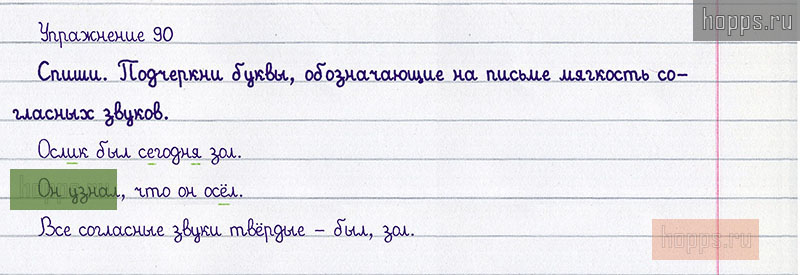 hopps.ru
Упражнение 90
Спиши. Подчеркни буквы, обозначающие на письме мягкость со-
гласных звуков.
Ослик был сегодня зол.
Он узнал, что он осёл.
Все согласные звуки твёрдые – был, зол.
hopps.ru